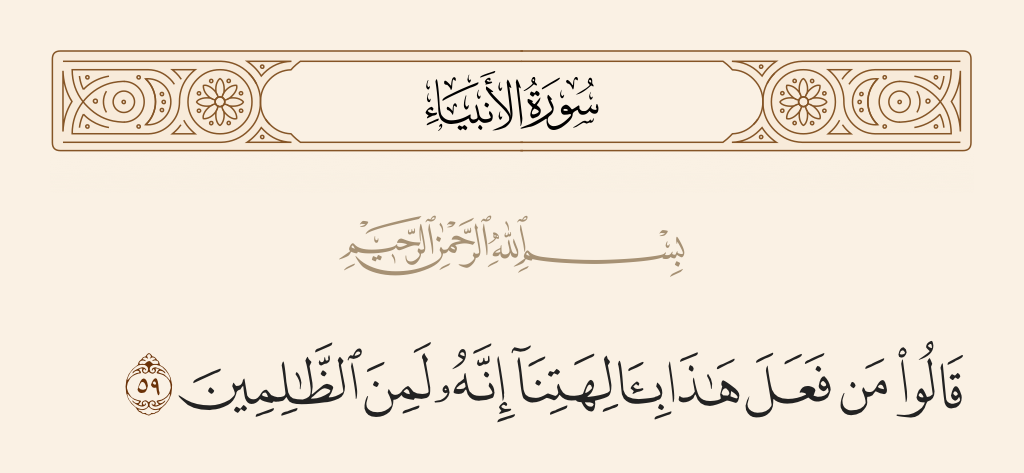 سُورَةُ الأَنبِيَاءِ
بِسْمِ ٱللَّهِ ٱلرَّحْمَٰنِ ٱلرَّحِيمِ
قَالُوا۟ مَن فَعَلَ هَٰذَا بِـَٔالِهَتِنَآ إِنَّهُۥ لَمِنَ ٱلظَّٰلِمِينَ ٥٩